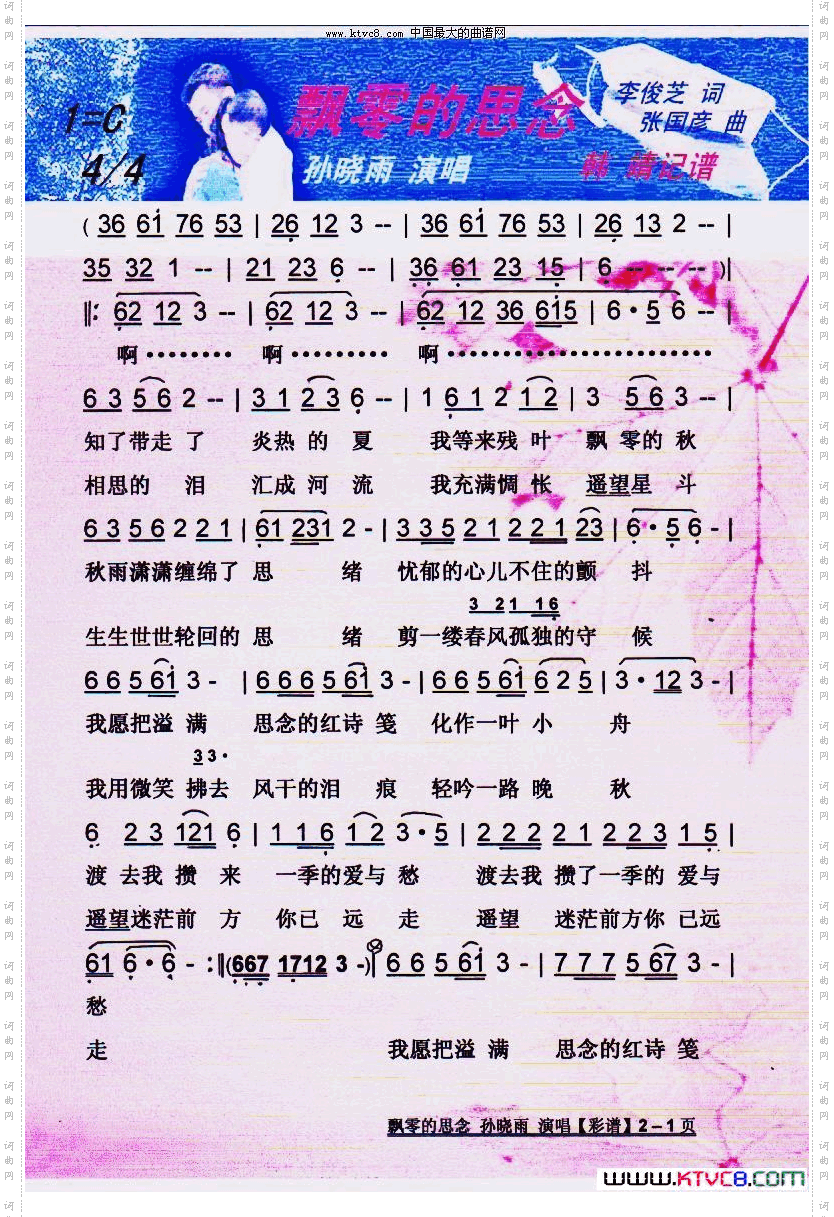 www.ktvc8.com 中国最大的曲谱网
1=C
4/4
飘零的思念
李俊芝 词
张国彦 曲
孙晓雨 演唱
韩 靖记谱
( 36 61 76 53 | 26 12 3 -- | 36 61 76 53 | 26 13 2 -- |
35 32 1 -- | 21 23 6 -- | 36 61 23 15 | 6 -- -- -- )|
‖: 62 12 3 -- | 62 12 3 -- | 62 12 36 615 | 6·5 6 -- |
啊········ 啊········· 啊························
6 3 5 6 2 -- | 3 1 2 3 6 -- | 1 6 1 2 1 2 | 3 5 6 3 -- |
知了带走 了 炎热 的 夏 我等来残 叶 飘 零的 秋
相思的 泪 汇成 河 流 我充满惆 怅 遥望星 斗
6 3 5 6 2 2 1 | 61 231 2 - | 3 3 5 2 1 2 2 1 23 | 6·5 6 - |
秋雨潇潇缠绵了 思 绪 忧郁的心儿不住的颤 抖
3 21 16
生生世世轮回的 思 绪 剪一缕春风孤独的守 候
6 6 5 61 3 - | 6 6 6 5 61 3 - | 6 6 5 61 6 2 5 | 3·12 3 - |
我愿把溢 满 思念的红诗 笺 化作一叶 小 舟
3 3·
我用微笑 拂去 风干的泪 痕 轻吟一路 晚 秋
6 2 3 121 6 | 1 1 6 1 2 3·5 | 2 2 2 2 1 2 2 3 1 5 |
渡 去我 攒 来 一季的爱与 愁 渡去我 攒了一季的 爱与
遥望迷茫前 方 你已 远 走 遥望 迷茫前方你 已远
61 6·6 - :‖(667 1712 3 -) 6 6 5 61 3 - | 7 7 7 5 67 3 - |
愁
走 我愿把溢 满 思念的红诗 笺
飘零的思念 孙晓雨 演唱【彩谱】2－1页
www.KTVC8.com
词曲网